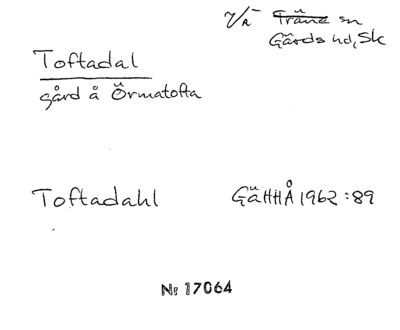 Vä sn
Gärds hd, Sk
Toftadal
gård å Örmatofta
Toftadahl GäHHÅ 1962:89
Nr 17064